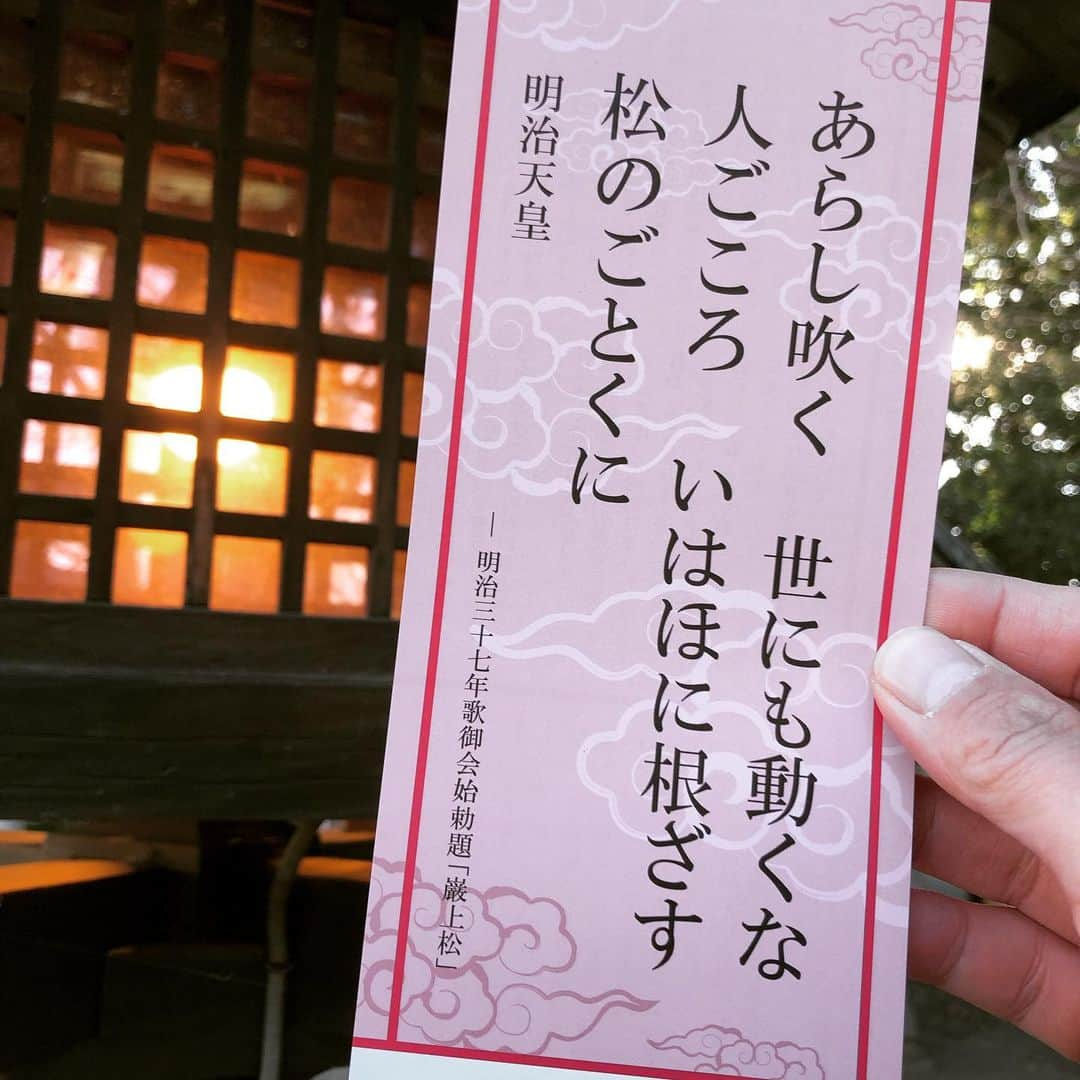 あらし吹く　世にも動くな
人ごころ　いはほに根ざす
松のごとくに
明治天皇
― 明治三十七年歌御会始勅題「巌上松」